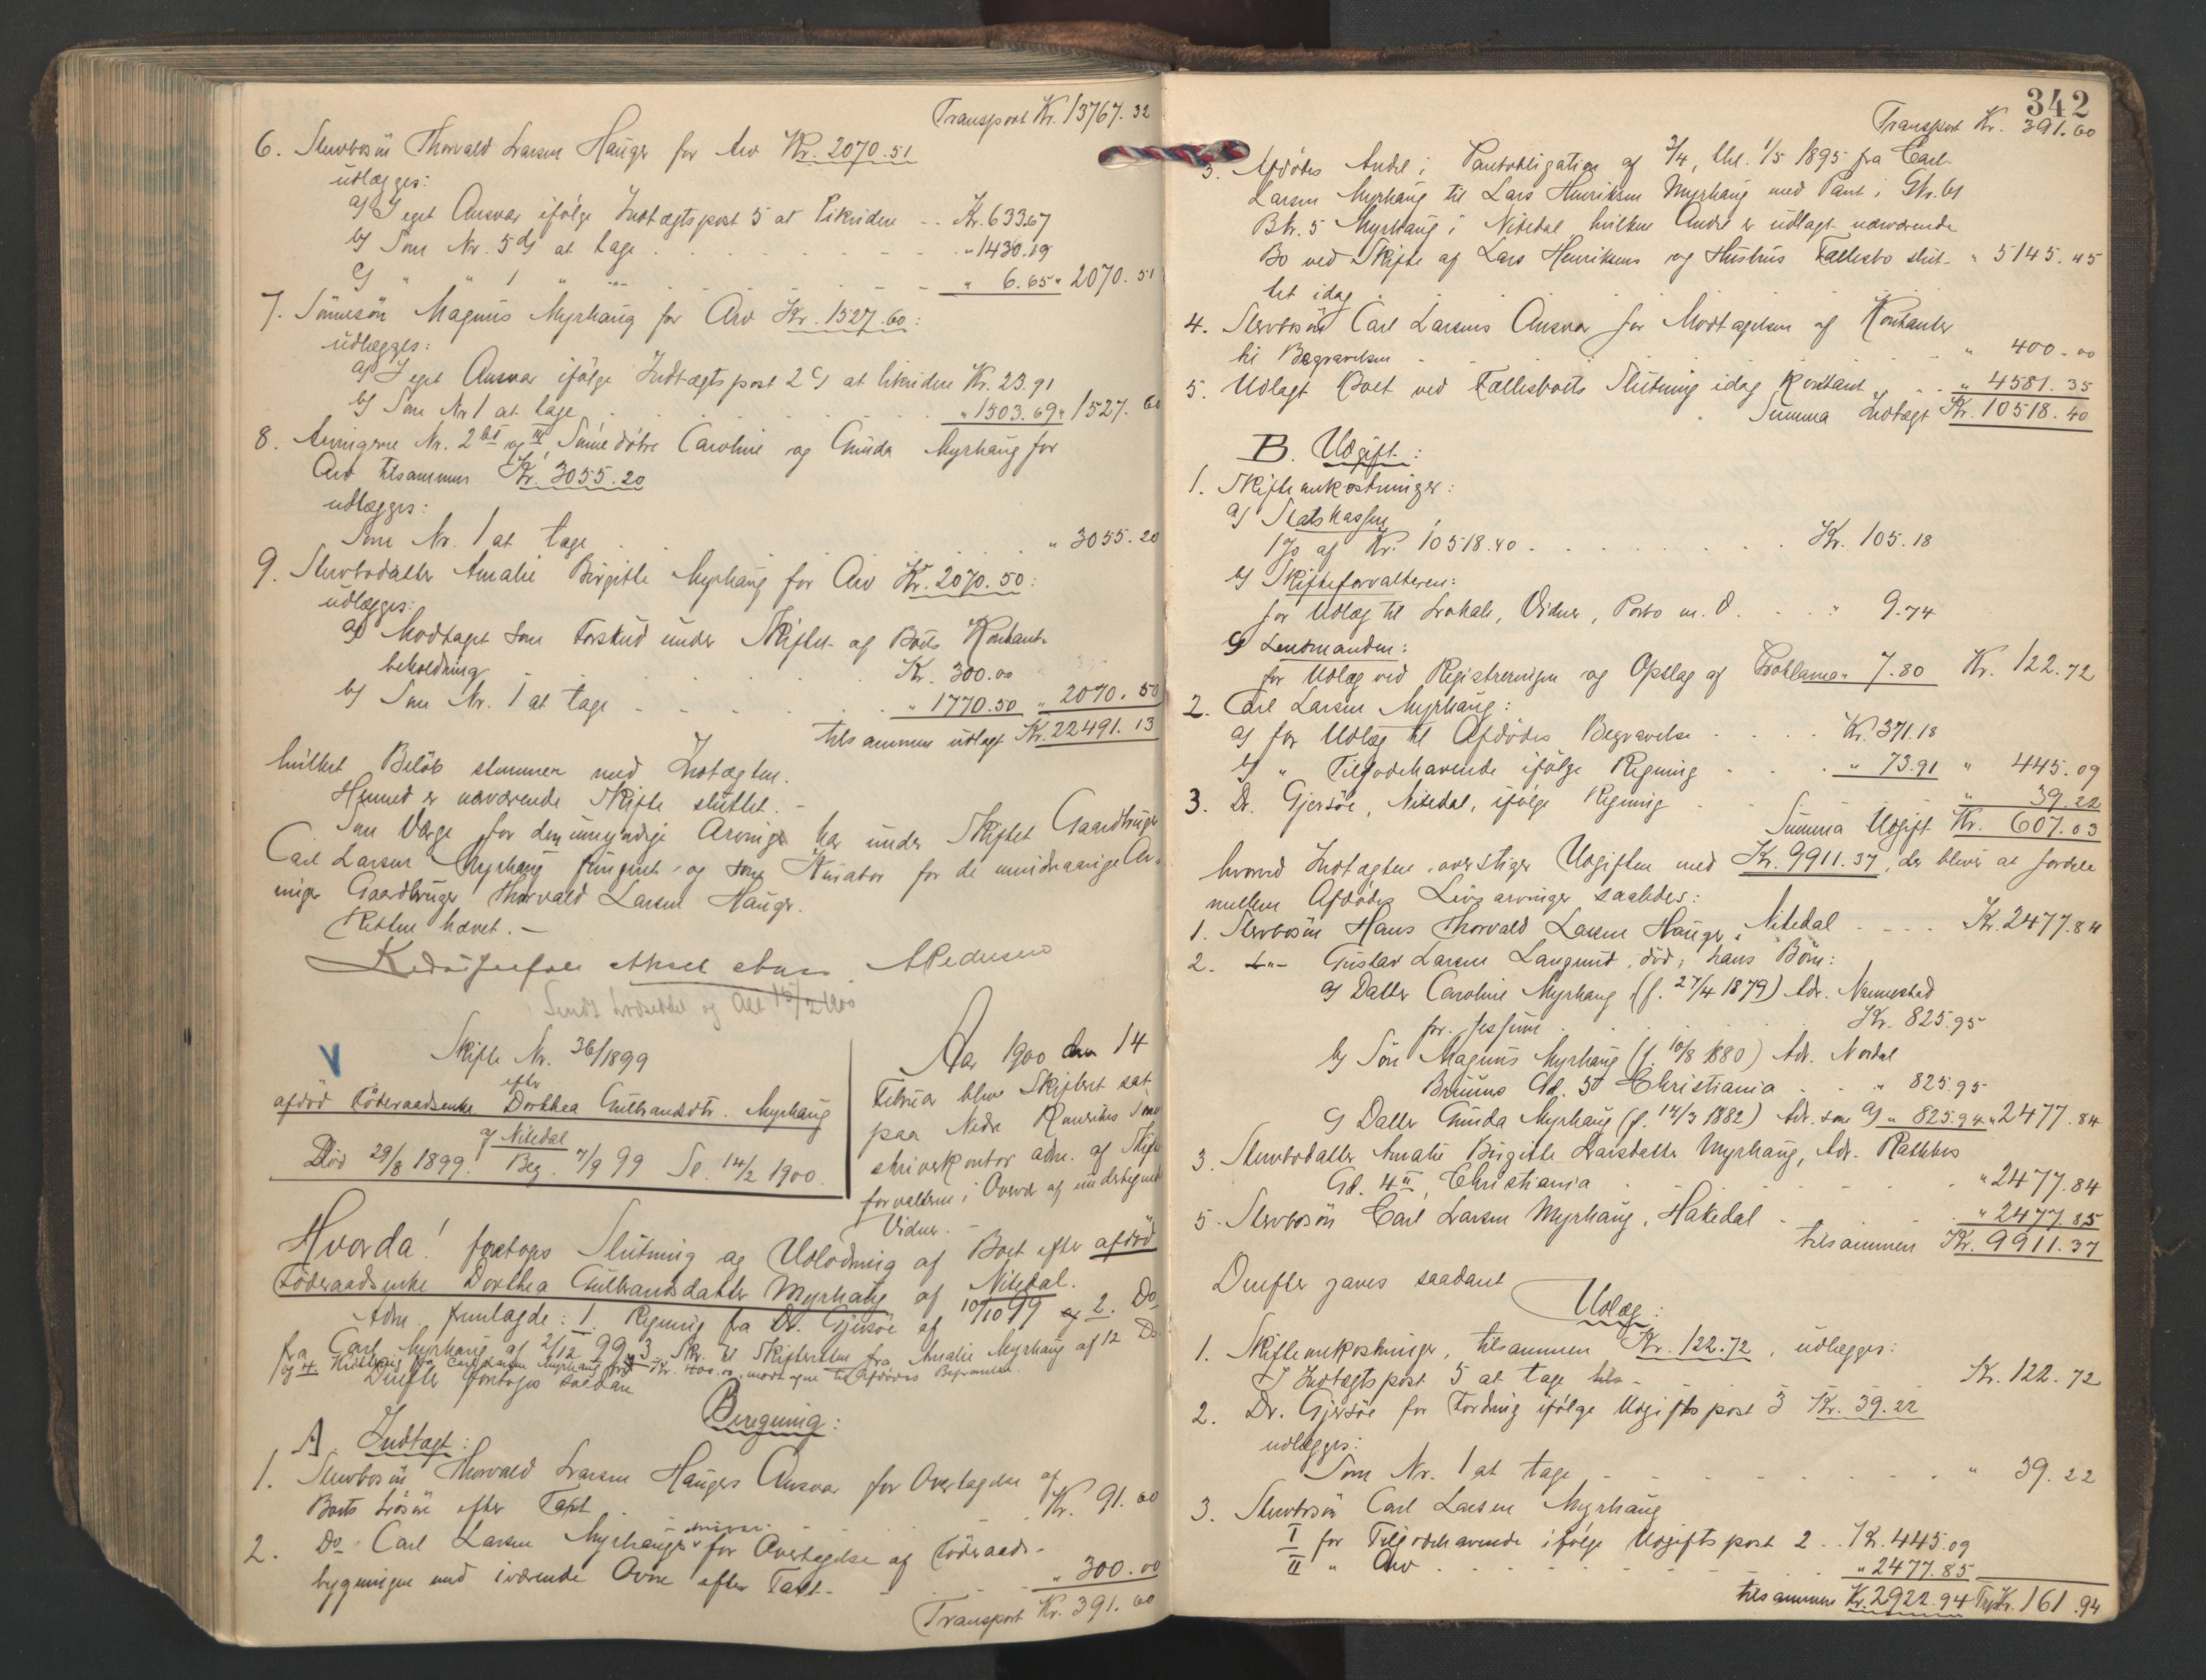 Transport Kr. 13767.32
6. Stervbosön Thorvald Larsen Hauger for Arv Kr. 2070.51
udlægges:
a) I eget Ansvar ifölge Indtægtspost 5 at likvidere Kr. 633.67
b) Som Nr. 5 d) at tage " 1430.19
c) " " 1 " " " 6.65 " 2070.51
7. Sönnesön Magnus Myrhaug for Arv Kr. 1527.60:
udlægges:
a) I eget Ansvar ifölge Indtægtspost 2 c) at likvidere Kr. 23.91
b) Som Nr 1 at tage " 1503.69 " 1527.60
8. Arvingerne Nr. 2 bI og III, Sönnedötre Caroline og Gunda Myrhaug for
Arv tilsammen Kr. 3055.20
udlægges:
Som Nr. 1 at tage " 3055.20
9. Stervbodatter Amalie Birgitte Myrhaug for Arv Kr. 2070.50:
udlægges:
a) Modtaget som Forskud under Skiftet af Boets Kontant-
beholdning Kr. 300.00
b) Som Nr. 1 at tage " 1770.50 " 2070.50
tilsammen udlagt Kr. 22491.13
hvilket Belöb stemmer med Indtægten.
Hermed er nærværende Skifte sluttet. –
Som Værge for den umyndige Arving har under Skiftet Gaardbruger
Carl Larsen Myrhaug fungeret og som Kurator for de mindreaarige Ar-
vinger Gaardbruger Thorvald Larsen Hauger.
Retten hævet. –
A Pedersen
15/2 1900
Skifte Nr. 36/1899
efter
afdöd Föderaadsenke Dorthea Gulbrandsdtr. Myrhaug
af Nitedal
Död 29/8 1899. Beg. 7/9 99 Sl. 14/2 1900.
Aar 1900 den 14
Februar blev Skifteret sat
paa Nedre Romerikes Soren-
skriverkontor adm. af Skifte-
forvalteren i Overvær af undertegnede
Vidner. –
Hvorda! foretoges Slutning og Udlodning af Boet efter afdöd
Föderaadsenke Dorthea Gulbrandsdatter Myrhaug af Nitedal.
Adm. fremlagde: 1. Regning fra Dr. Gjersöe af 10/10 99 og 2. Do
fra Carl Myrhaug af 2/12 99, 3 Skr. til Skifteretten fra Amalie Myrhaug af 12 Ds
og 4. fra Carl Larsen Myrhaug Kr. 400.00, modtagne til Afdödes Begravelse.
Derefter foretoges saadan
Beregning:
A. Indtægt:
1. Stervbosön Thorvald Larsen Haugers Ansvar for Overtagelse af
Boets Lösöre efter Taxt Kr. 91.60
2. Do Carl Larsen Myrhaugs Ansvar for Overtagelse af Föderaads-
bygningen med iværende Ovne efter Taxt " 300.00
Transport Kr. 391.60
342
Transport Kr. 391.60
3. Afdödes Andel i Pantobligation af 3/4, thl. 1/5 1895 fra Carl
Larsen Myrhaug til Lars Henriksen Myrhaug med Pant i
Br. 5 Myrhaug i Nitedal hvilken Andel er udlagt nærværende
Bo ved Skifte af Lars Henriksens og Hustrus Fællesbo slut-
tet idag " 5145.45
4. Stervbosön Carl Larsens Ansvar for Modtagelsen af Kontanter
til Begravelsen " 400.00
5. Udlagt Boet ved Fællesboets Slutning idag kontant " 4581.35
Summa Indtægt Kr. 10518.40
B. Udgift:
1. Skifteomkostninger:
a) Statskassen
1% af Kr. 10518.40 Kr. 105.18
b) Skifteforvalteren:
for Udlæg til Lokale, Vidner, Porto m. v. " 9.74
c) Lensmanden:
for Udlæg ved Registreringen og Opslag af Proklama " 7.80 Kr. 122.72
2. Carl Larsen Myrhaug:
a) for Udlæg til Afdödes Begravelse Kr. 371.18
b) " Tilgodehavende ifölge Regning " 73.91 " 445.09
3. Dr. Gjersöe, Nitedal, ifölge Regning " 39.22
Summa Udgift Kr. 607.03
hvorved Indtægten overstiger Udgiften med Kr. 9911.37, der bliver at fordele
mellem Afdödes Livsarvinger saaledes:
1. Stervbosön Hans Thorvald Larsen Hauger, Nitedal Kr. 2477.84
2. Gustav Larsen Langrud, död; hans Börn:
a) Datter Caroline Myrhaug (f. 27/4 1879) Adr. Nannestad
pr. Jessheim Kr. 825.95
b) Sön Magnus Myrhaug (f. 10/8 1880) Adr. Nordal
Bruuns Gd. 5 Christiania " 825.95
c) Datter Gunda Myrhaug (f. 14/3 1882) Adr. som a) " 825.94 " 2477.84
3. Stervbodatter Amalie Birgitte Larsdatter Myrhaug, Adr.
Gd. 4 II, Christiania " 2477.84
5. Stervbosön Carl Larsen Myrhaug, Hakedal " 2477.85
tilsammen Kr. 9911.37
Derefter gaves saadant
Udlæg:
1. Skifteomkostninger, tilsammen Kr. 122.72, udlægges:
I Indtægtspost 5 at tage Kr. 122.72
2. Dr. Gjersöe for Fordring ifölge Udgiftspost 3 Kr. 39.22
udlægges:
Som Nr. 1 at tage " 39.22
3. Stervbosön Carl Larsen Myrhaug
I for Tilgodehavende ifölge Udgiftspost 2 Kr. 445.09
II " Arv " 2477.85
tilsammen Kr. 2922.94 Trsp. Kr. 161.94